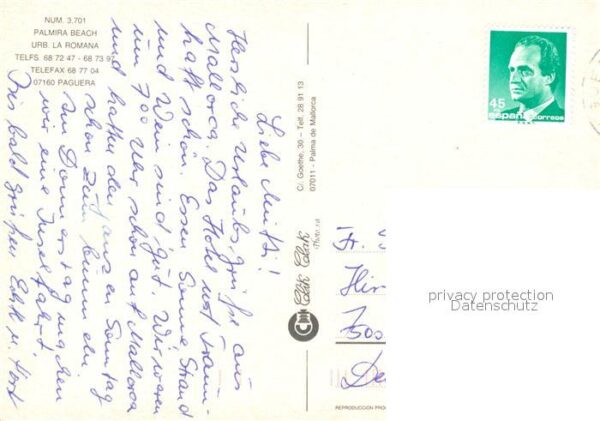 NUM. 3.701
PALMIRA BEACH
URB. LA ROMANA
TELFS 68 72 47 - 68 73 9
TELEFAX 68 77 04
07160 PAGUERA
Liebe Mutti!
Herzliche Urlaubsgrüße aus
Mallorca. Das Hotel ist traum-
haft schön. Essen Sonne Strand
und Wein sind gut. Wir waren
um 700 Uhr schon auf Mallorca
und hatten den ganzen Sonntag
schon zum bummeln.
Am Donnerstag machen
wir eine Inselfahrt.
Bis bald grüßen Horst
C/. Goethe, 30 – Telf. 28 91 13
07011 - Palma de Mallorca
Clik Clak
45
España correos
Fr.
7500
privacy protection
Datenschutz